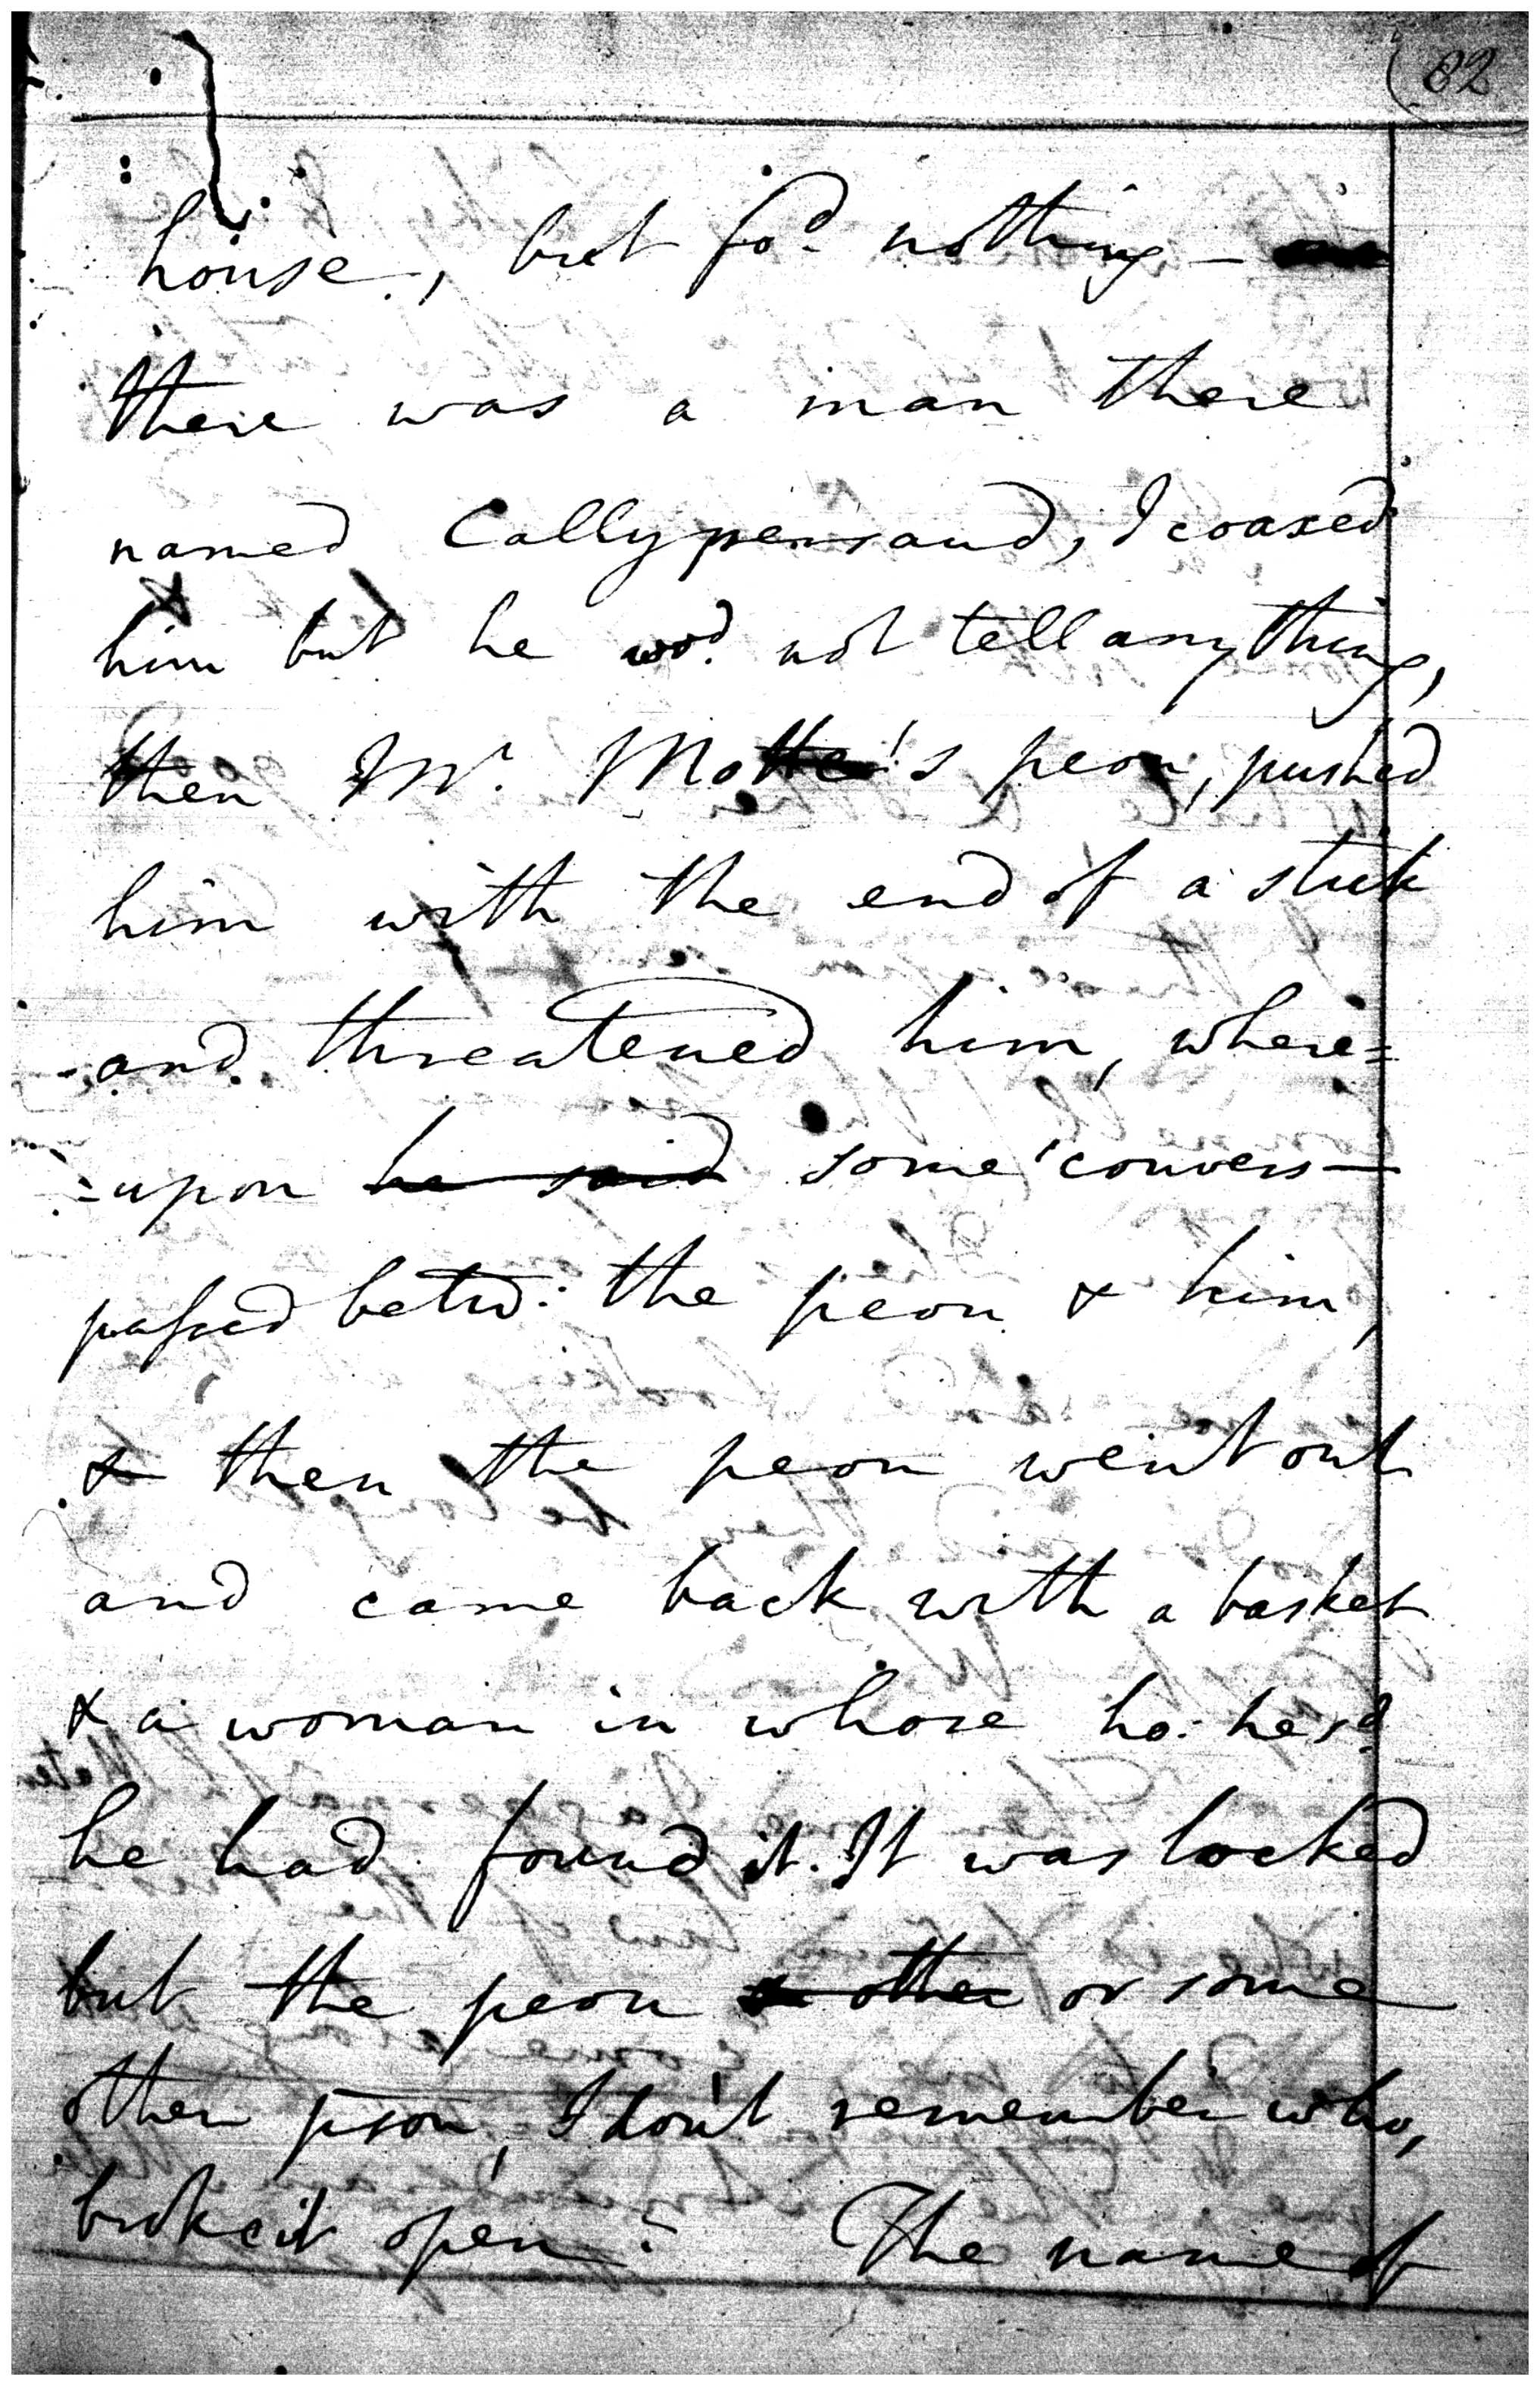 82
house, but fod. nothing —
there was a man there
named Callypersaud, I coaxed
him but he wod. not tell any thing,
then Mr. Motte's peon, pushed
him with the end of a stick
and threatened him, where=
=upon he said some convers—
passed betw: the peon & him,
& then the peon went out
and came back with a basket
& a woman in whose ho: he sd.
he had found it. It was locked
but the peon other or some
other pson, I don't remember who,
broke it open. The name of